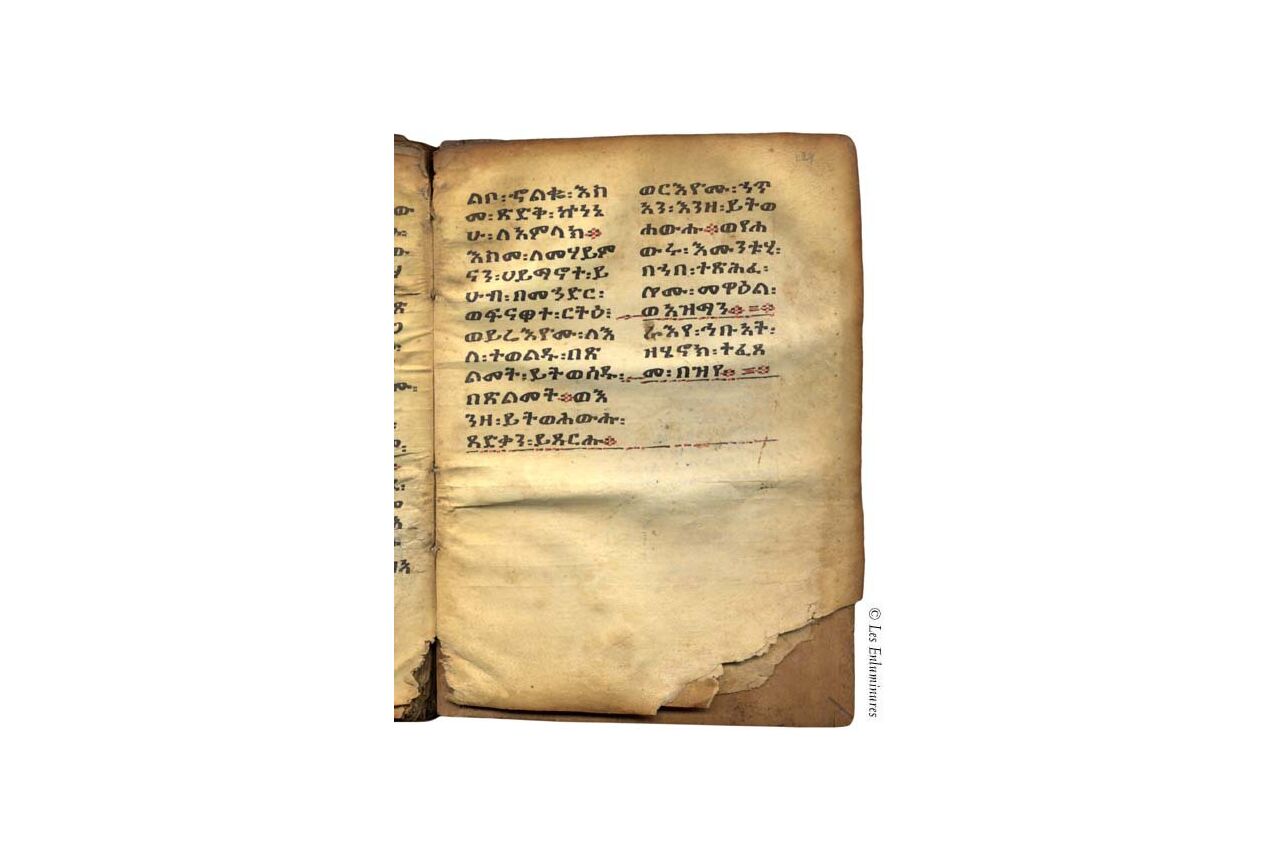 ልቦ፡ኍልቈ፡እከ
መ፡ጽድቅ፡ኵነኔ
ሁ፡ለአምላክ፨
እከመ፡ለመሃይም
ናን፡ሀይማኖተ፡ይ
ሁብ፡በመኀድር፡
ወፍናዌተ፡ርትዕ፡
ወይሬእየሙ፡ለእ
ለ፡ተወልዱ፡በጽ
ልመት፡ይትወሰዱ፡
በጽልመት፨ወእ
ንዘ፡ይትወሐውሑ፡
ጻድቃን፡ይጸርሑ፨
ወርእየሙ፡ኀጥ
አን፡እንዘ፡ይትወ
ሐውሑ፨ወየሐ
ውሩ፡እሙንቱሂ፡
በኀበ፡ተጽሕፈ፡
ሎሙ፡መዋዕል፡
ወአዝማን፨=፨
ራእየ፡ኅቡኣት፡
ዘሄኖክ፡ተፈጸ
መ፡በዝየ፨=፨
© Les Enluminures